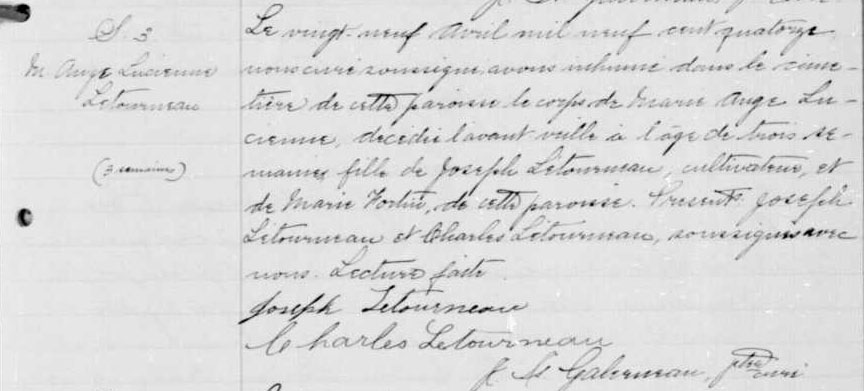 S. 3
M. Ange Lucienne
Letourneau
(3 semaines)
Le vingt-neuf Avril mil neuf cent quatorze
nous curé soussigné avons inhumé dans le cime-
tière de cette paroisse le corps de Marie Ange Lu-
cienne, décédée l'avant veille à l'âge de trois se-
maines, fille de Joseph Létourneau, cultivateur, et
de Marie Fortin, de cette paroisse. Présents Joseph
Létourneau et Charles Létourneau, soussignés avec
nous. Lecture faite.
Joseph Letourneau
Charles Letourneau
ptre curé